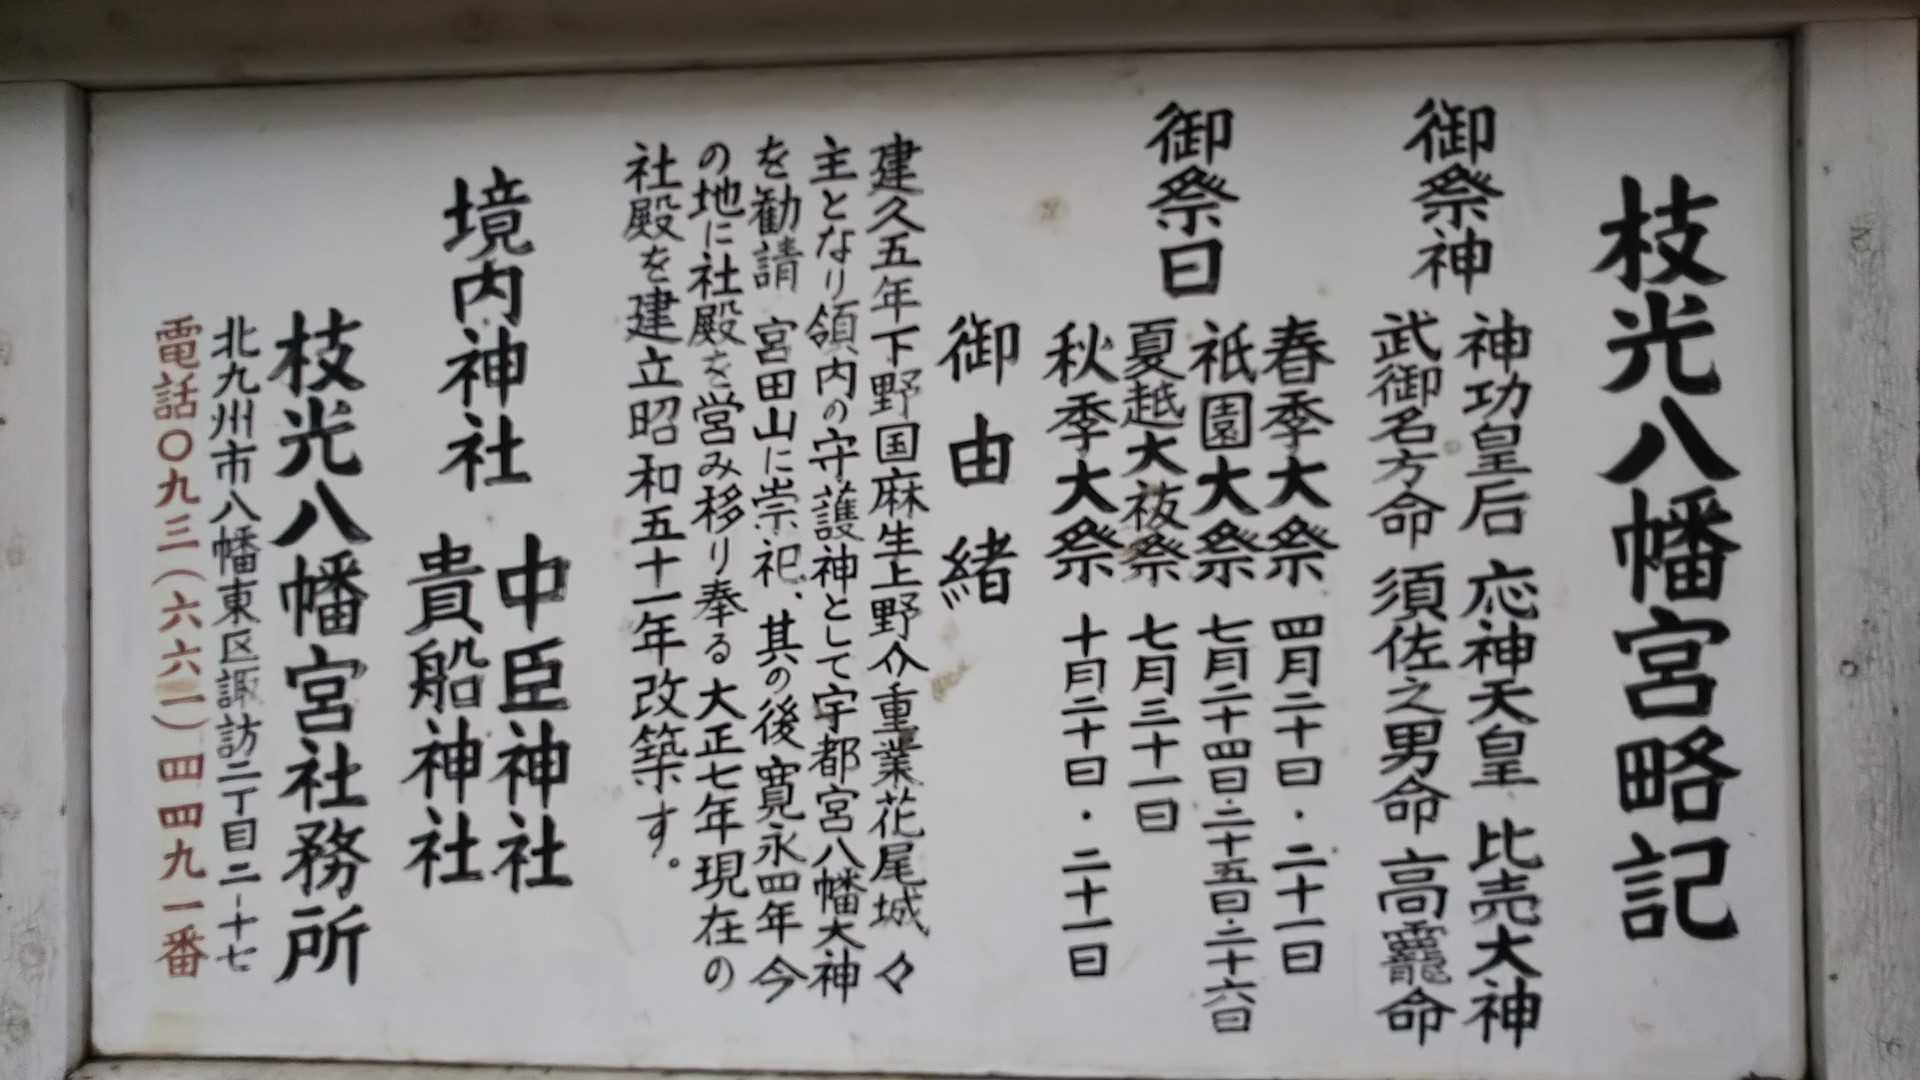 枝光八幡宮略記
御祭神
神功皇后 応神天皇 比売大神
武御名方命 須佐之男命 高靇命
御祭日
春季大祭 四月二十日・二十一日
祇園大祭 七月二十四日・二十五日・二十六日
夏越大祓祭 七月三十一日
秋季大祭 十月二十日・二十一日
御由緒
建久五年下野国麻生上野介重業花尾城々
主となり領内の守護神として宇都宮八幡大神
を勧請 宮田山に崇祀、其の後寛永四年今
の地に社殿を営み移り奉る大正七年現在の
社殿を建立昭和五十一年改築す。
境内神社
中臣神社
貴船神社
枝光八幡宮社務所
北九州市八幡東区諏訪二丁目二-十七
電話〇九三(六六一)四四九一番